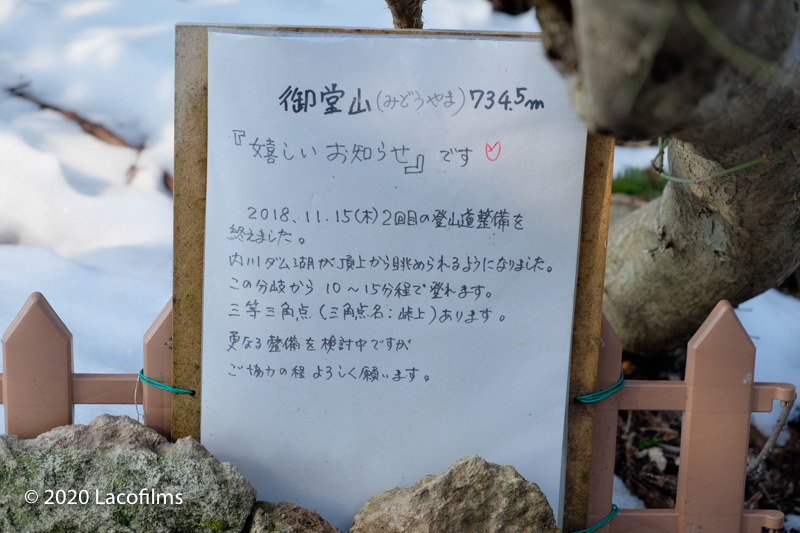 御堂山(みどうやま)734.5m
『嬉しいお知らせ』です
2018.11.15(木)2回目の登山道整備を
終えました。
内川ダム湖が頂上から眺められるようになりました。
この分岐から 10～15分程で登れます。
三等三角点(三角点名:峠上)あります。
更なる整備を検討中ですが
ご協力の程 よろしく願います。
© 2020 Lacofilms